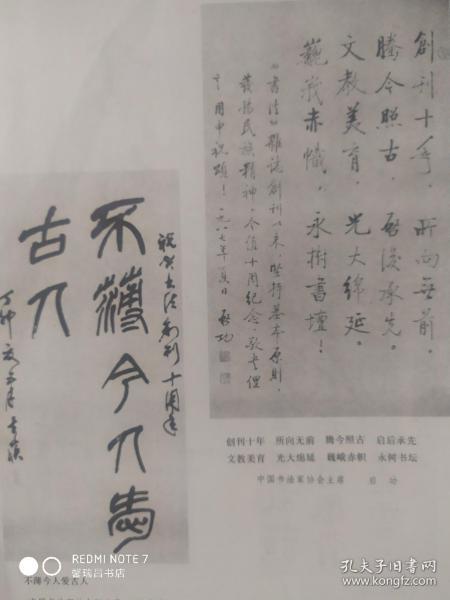 創刊十年,所向無前。
騰今照古,啓後承先。
文教美育,光大綿延。
巍我赤幟,永樹書壇!
《書法》雜誌創刊以来,堅持基本原則,
發揚民族精神,今值十周紀念,敬書俚
言用申祝頌!一九八七年夏日 啟功
祝賀書法創刊十周年
不薄今人愛
古人
丁卯夏五月
创刊十年 所向无前 腾今照古 启后承先
文教美育 光大绵延 巍峨赤帜 永树书坛
中国书法家协会主席 启功
不薄今人爱古人
REDMI NOTE 7
馨瑞昌书店
孔夫子旧书网